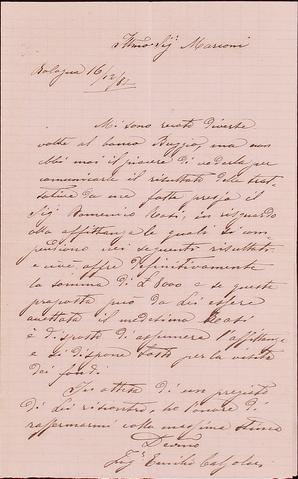 Illmo Sig. Marconi
Bologna 16/12/82
Mi sono recato diverse
volte al banco ma non
ebbi mai il piacere di vederla per
comunicarle il risultato delle trat-
tative da me fatte presso il
Sig. Domenico in riguardo
alla affittanza le quali si com-
pendiano nei seguenti risultati
e cioè offre definitivamente
la somma di £ 8000 e se questa
proposta può da Lei essere
accettata il medesimo
è disposto di assumere l'affittanza
e si dispone tosto per la visita
dei fondi.
In attesa di un pregiato
di Lei riscontro, ho l'onore di
raffermarmi colla massima stima
Devmo
Emilio